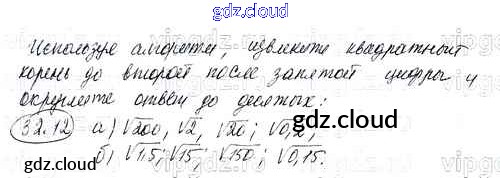 gdz.cloud
Используя алгоритм, извлеките квадратный
корень до второй после запятой цифры и
округлите ответ до десятых:
32.12 а) √200, √2, √20; √0,2;
б) √1,5; √15; √150; √0,15.
gdz.cloud
gdz.cloud
gdz.cloud